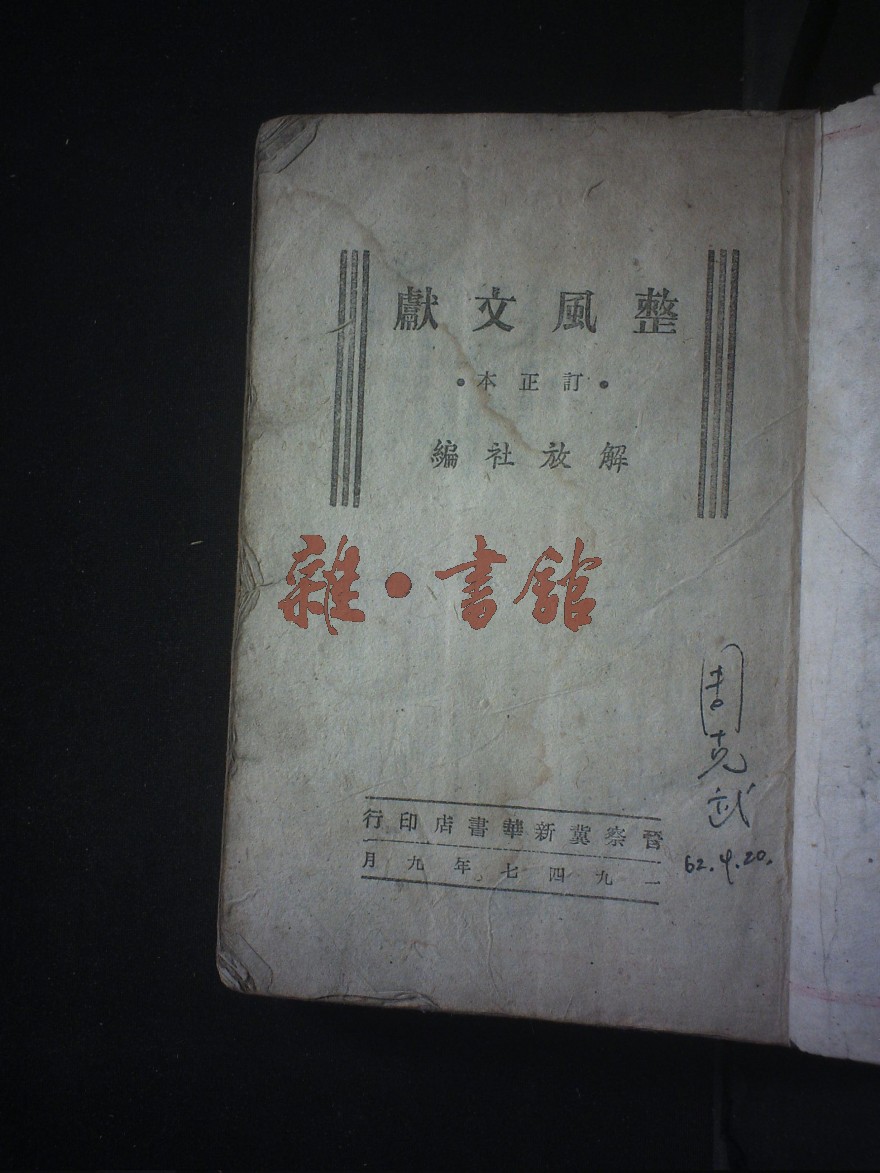 整風文獻
·訂正本·
解放社編
雜·書館
周克武
62.4.20.
晉察冀新華書店印行
一九四七年九月